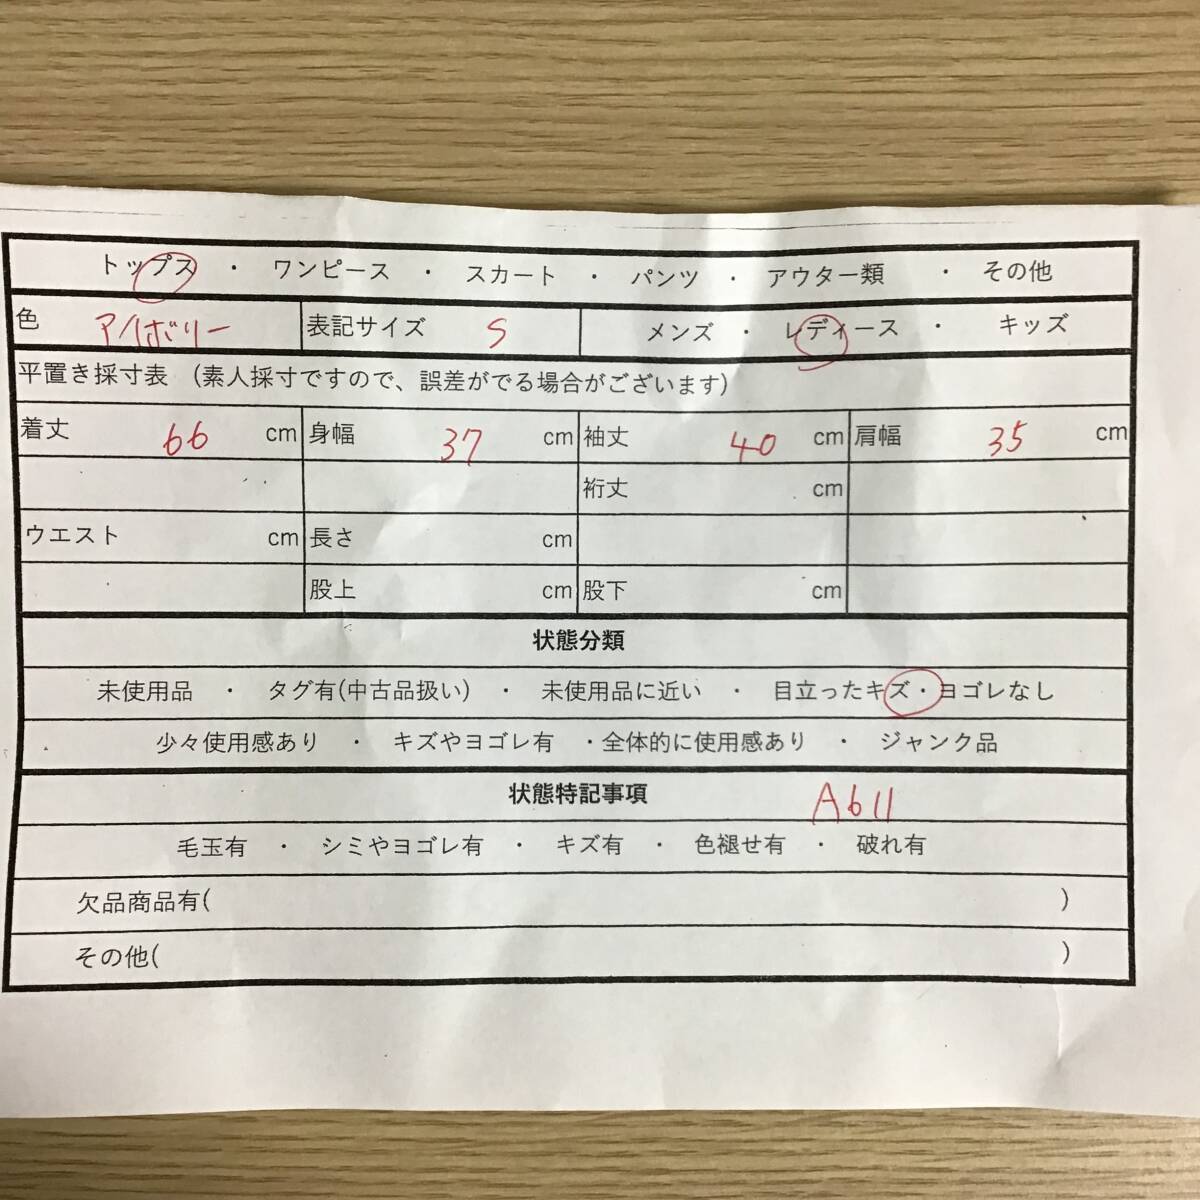 トップス ・ ワンピース ・ スカート ・ パンツ ・ アウター類 ・ その他
色 アイボリー 表記サイズ S メンズ ・ レディース ・ キッズ
平置き採寸表 (素人採寸ですので、誤差がでる場合がございます)
着丈 66 cm 身幅 37 cm 袖丈 40 cm 肩幅 35 cm
裄丈 cm
ウエスト cm 長さ cm
股上 cm 股下 cm
状態分類
未使用品 ・ タグ有(中古品扱い) ・ 未使用品に近い ・ 目立ったキズ・ヨゴレなし
少々使用感あり ・ キズやヨゴレ有 ・全体的に使用感あり ・ ジャンク品
状態特記事項 A611
毛玉有 ・ シミやヨゴレ有 ・ キズ有 ・ 色褪せ有 ・ 破れ有
欠品商品有( )
その他( )